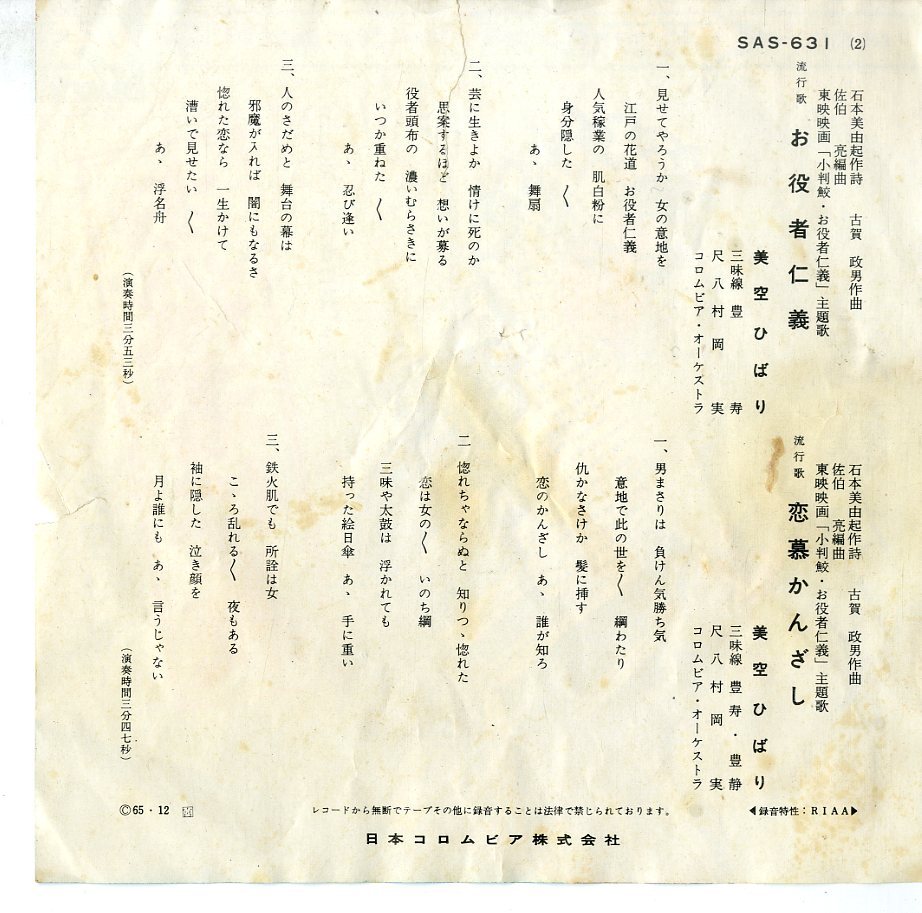 SAS-631 (2)
石本美由起作詩 古賀 政男作曲
佐伯 亮編曲
東映映画「小判鮫・お役者仁義」主題歌
流行歌 お役者仁義
美空ひばり
三味線 豊 寿
尺八 村岡 実
コロムビア・オーケストラ
一、見せてやろうか 女の意地を
江戸の花道 お役者仁義
人気稼業の 肌白粉に
身分隠した 〱
あゝ 舞扇
二、芸に生きよか 情けに死のか
思案するほど 想いが募る
役者頭布の 濃いむらさきに
いつか重ねた 〱
あゝ 忍び逢い
三、人のさだめと 舞台の幕は
邪魔が入れば 闇にもなるさ
惚れた恋なら 一生かけて
漕いで見せたい 〱
あゝ 浮名舟
(演奏時間三分五三秒)
石本美由起作詩 古賀 政男作曲
佐伯 亮編曲
東映映画「小判鮫・お役者仁義」主題歌
流行歌 恋慕かんざし
美空ひばり
三味線 豊寿・豊静
尺八 村岡 実
コロムビア・オーケストラ
一、男まさりは 負けん気勝ち気
意地で此の世を〱 綱わたり
仇かなさけか 髪に挿す
恋のかんざし あゝ 誰が知ろ
二 惚れちゃならぬと 知りつゝ惚れた
恋は女の〱 いのち綱
三味や太鼓は 浮かれても
持った絵日傘 あゝ 手に重い
三、鉄火肌でも 所詮は女
こゝろ乱れる〱 夜もある
袖に隠した 泣き顔を
月よ誰にも あゝ 言うじゃない
(演奏時間三分四七秒)
©65・12
レコードから無断でテープその他に録音することは法律で禁じられております。
◀録音特性：RIAA▶
日本コロムビア株式会社